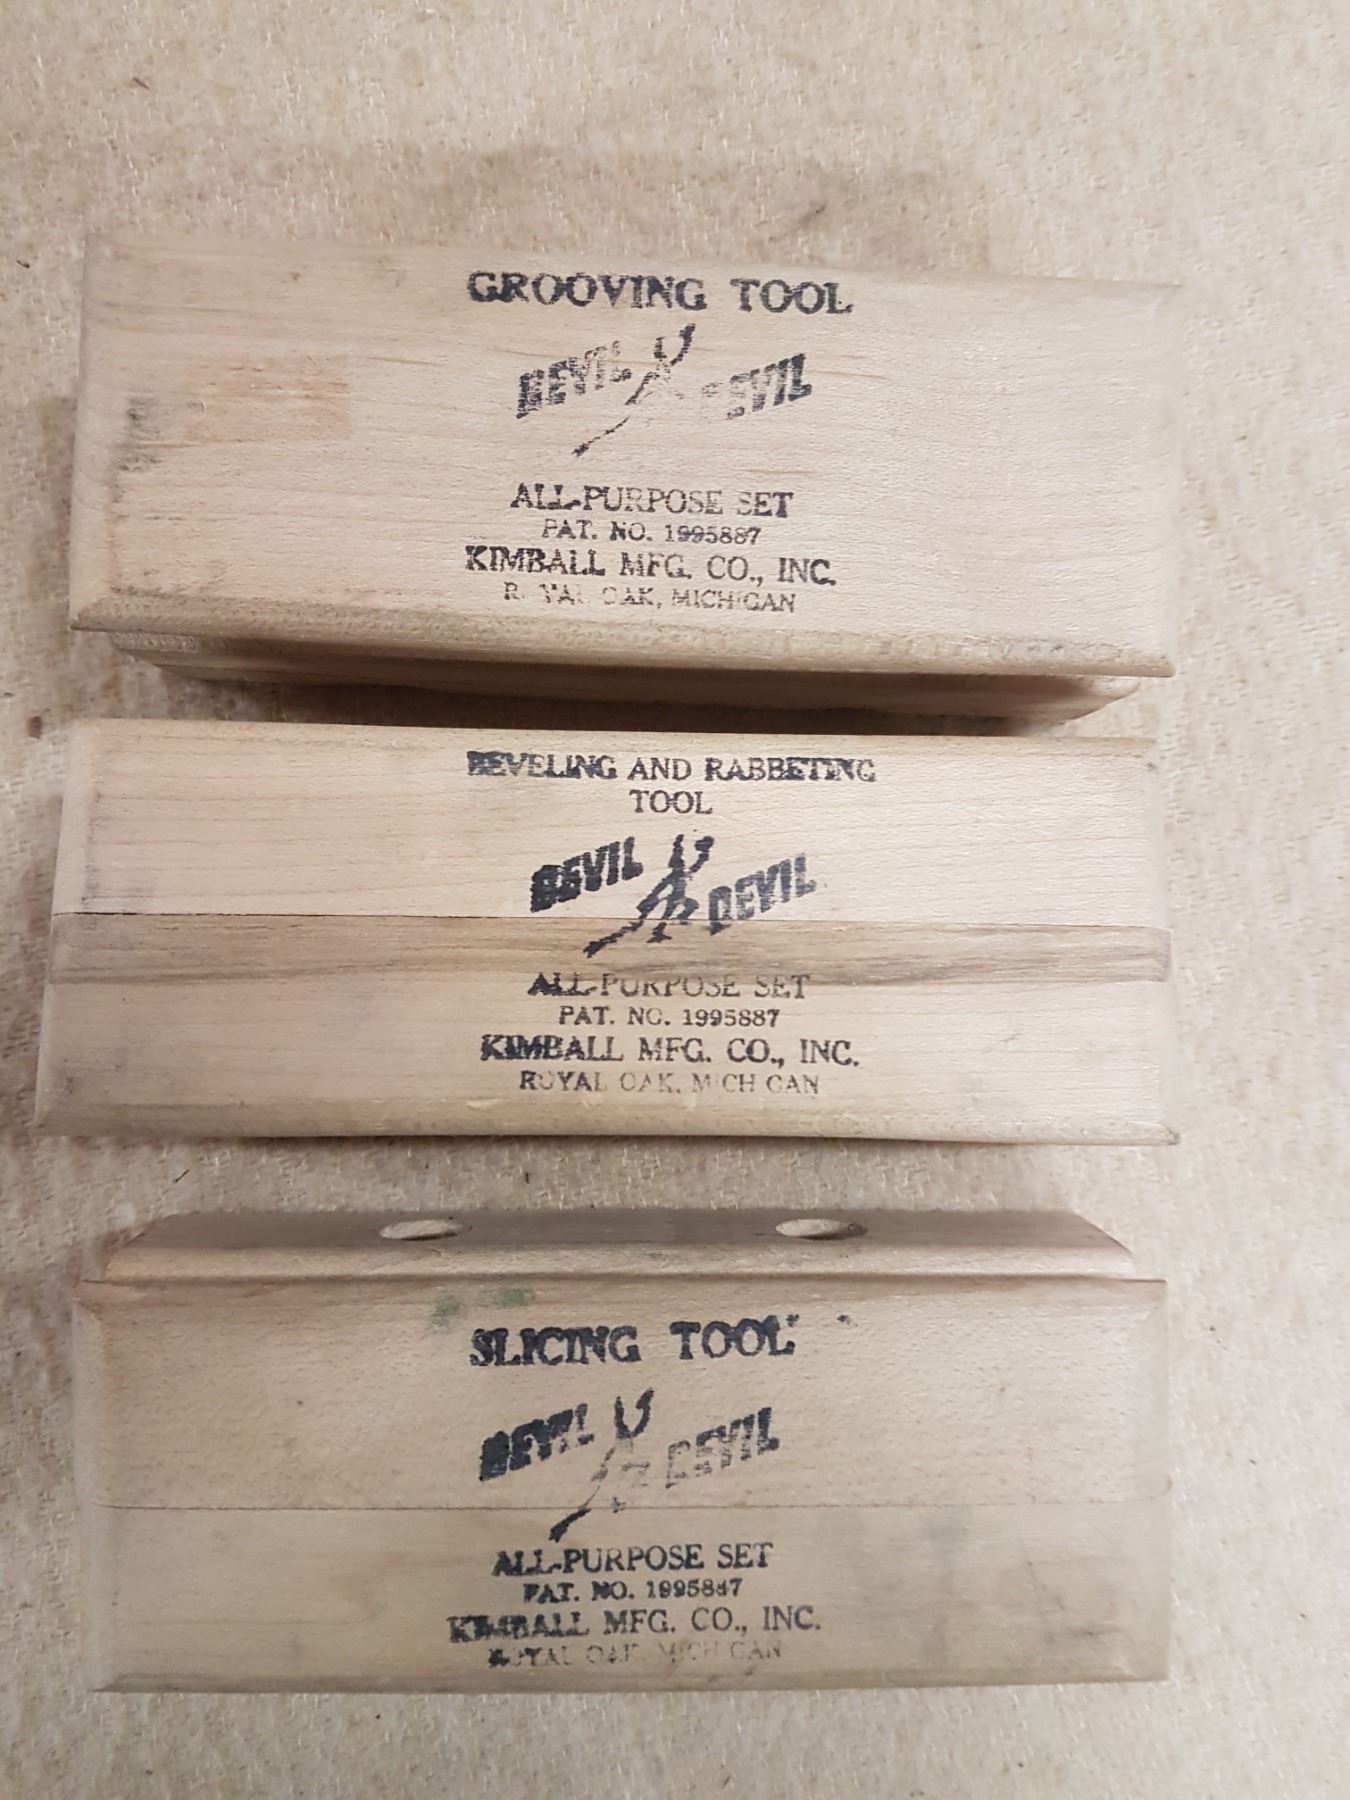 GROOVING TOOL
BEVIL DEVIL
ALL-PURPOSE SET
PAT. NO. 1995887
KIMBALL MFG. CO., INC.
ROYAL OAK, MICHIGAN
BEVELING AND RABBETING
TOOL
BEVIL DEVIL
ALL-PURPOSE SET
PAT. NO. 1995887
KIMBALL MFG. CO., INC.
ROYAL OAK, MICHIGAN
SLICING TOOL
BEVIL DEVIL
ALL-PURPOSE SET
PAT. NO. 1995887
KIMBALL MFG. CO., INC.
ROYAL OAK, MICHIGAN